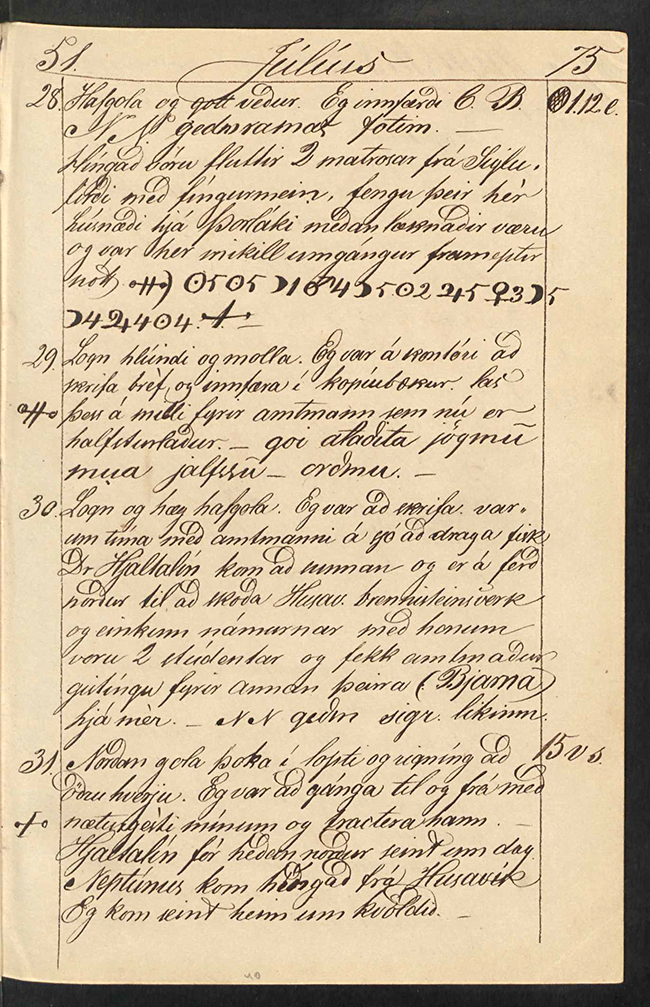 51. Júlíus 75
28. Hafgola og gott vedur. Eg innfærdi C. B. 1.12 c.
N N gednramas fotim. —
Hingad vóru fluttir 2 matrosar frá Siglu-
firdi med fingurmein, fengu þeir hér
húsnædi hjá Þorláki medan læknadir væru
og var hér mikill umgángur fram eptir
nott.
29. Logn hlíindi og molla. Eg var á kontóri ad
skrifa bréf og innfæra i kopiubækur. las
þess á milli fyrir amtmann sem nú er
halfsturladur. — goi atadita jögmū
mua jalfssū — ordmu. —
30. Logn og hæg hafgola. Eg var ad skrifa. var-
um tíma med amtmanni á sjó ad draga fisk
Dr Hjaltalín kom ad sunnan og er á ferd
nordur til ad skoda Husav. brennisteinsverk
og einkum námurnar med honum
voru 2 stúdentar og fekk amtmadur
gistíngu fyrir annan þeirra (Bjarna)
hjá mèr. — N N gedn sigr. likinn.
31. Nordan gola þoka í lopti og rigníng ad 15 v s.
ödru hverju. Eg var ad gánga til og frá med
næturgésti mínum og tractera hann. —
Hjaltalín fór hedan nordur seint um dag
Neptúnus kom hingad frá Husavík
Eg kom seint heim um kvöldid. —